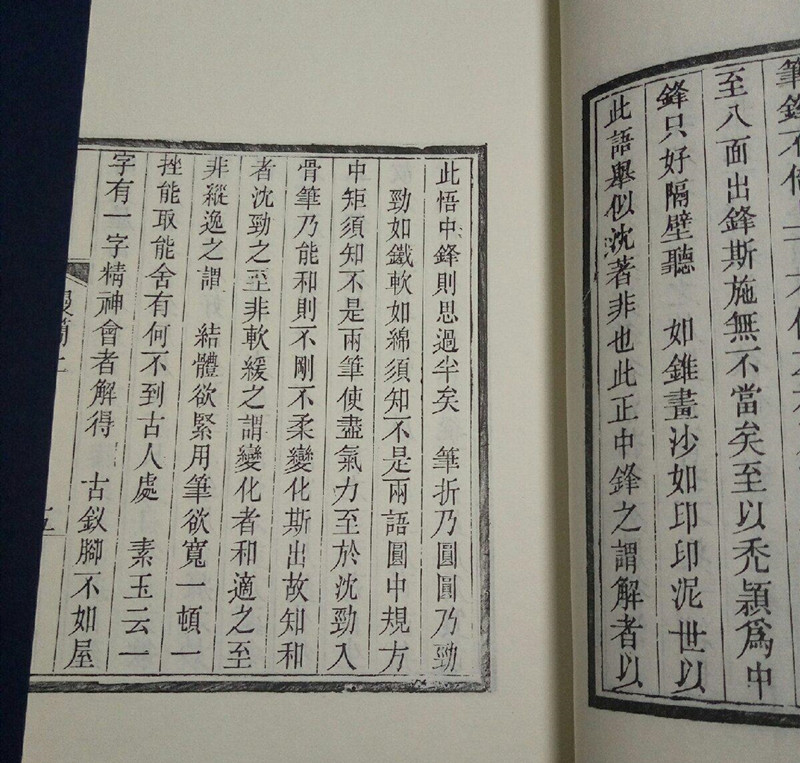 筆鋒不
至八面出鋒斯施無不當矣至以禿穎爲中
鋒只好隔壁聽　如錐畫沙如印印泥世以
此語舉似沈著非也此正中鋒之謂解者以
此悟中鋒則思過半矣　筆折乃圓圓乃勁
勁如鐵軟如綿須知不是兩語圓中規方
中矩須知不是兩筆使盡氣力至於沈勁入
骨筆乃能和則不剛不柔變化斯出故知和
者沈勁之至非軟緩之謂變化者和適之至
非縱逸之謂　結體欲緊用筆欲寬一頓一
挫能取能舍有何不到古人處　素玉云一
字有一字精神會者解得　古釵腳不如屋